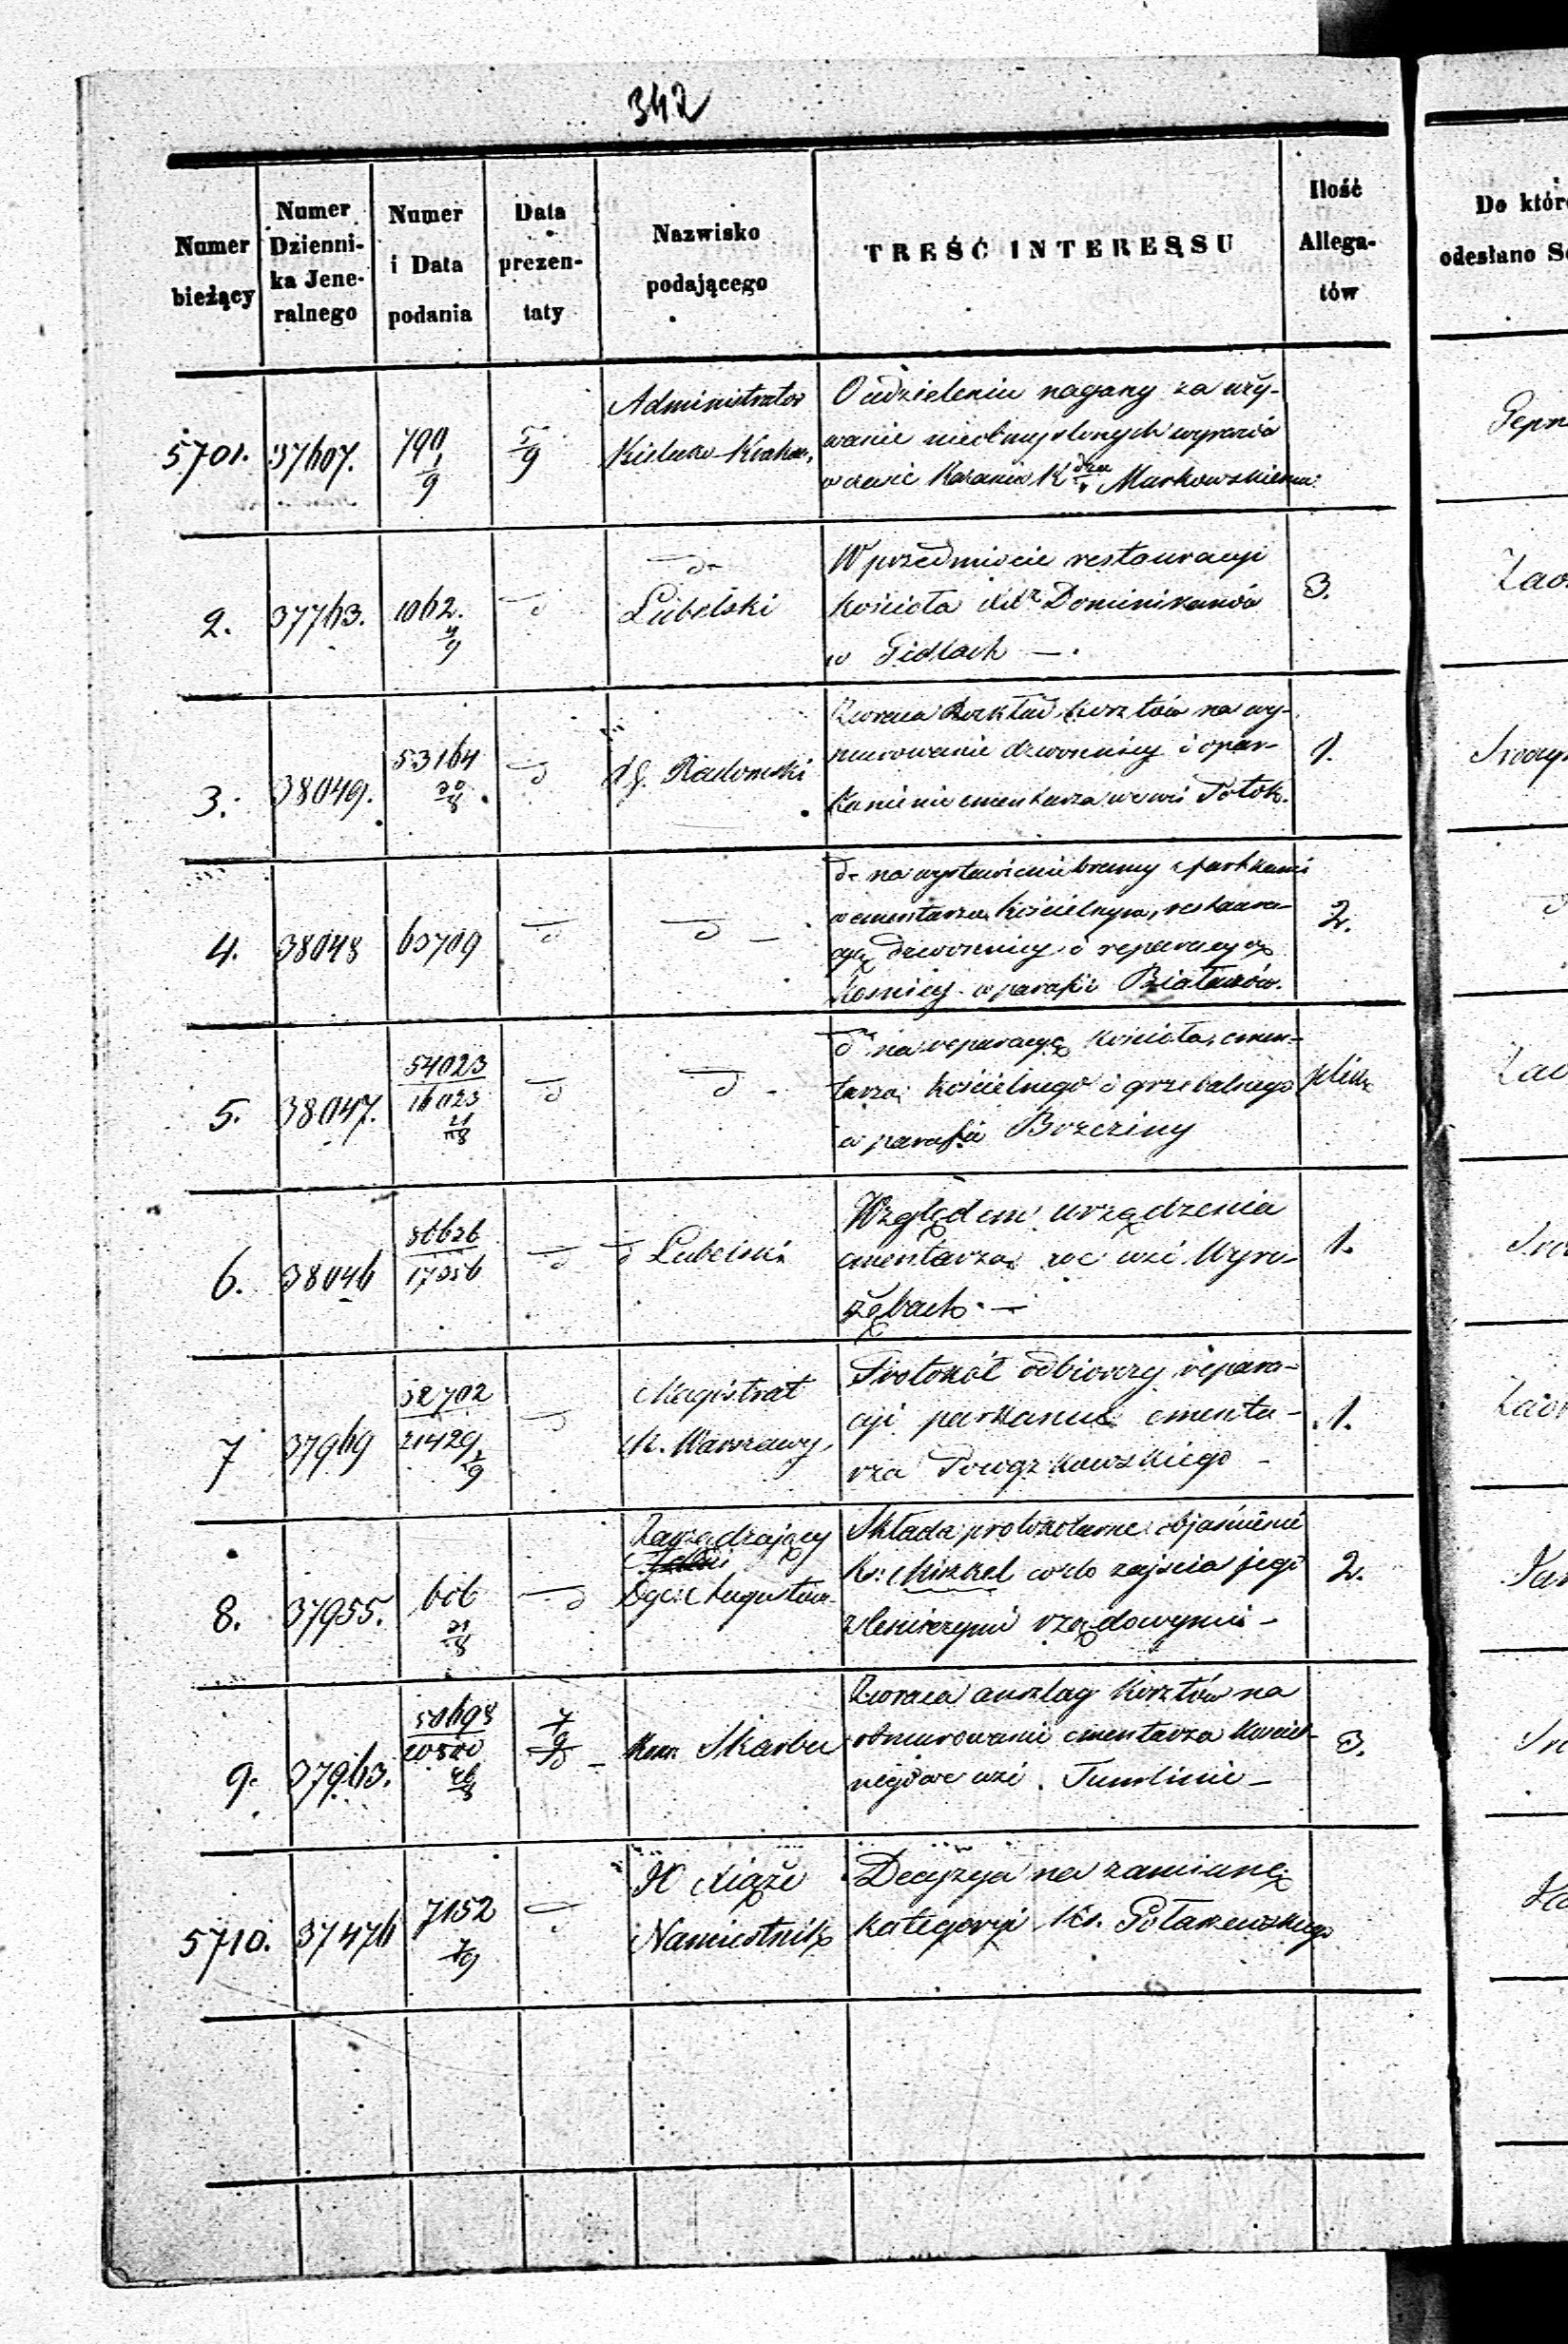 342
Numer bieżący
Numer Dzienni- ka Jene- ralnego
Numer i Data podania
Data prezen- taty
Nazwisko podającego
TREŚĆ INTERESSU
Ilość Allega- tów
Do któr
odesłano S
5701. 37607. 790 1/9 5/9
Administrator
Kielecko-Krakow.
O udzieleniu nagany za uży-
wanie nieobmyślonych wyrazów
w czasie Kazania X dzu Markowskiemu
2. 37763. 1062. 4/9 d
d-
Lubelski
W przedmiocie restauracyi
Kościoła XX Dominikanów
w Gidlach —.
3.
3. 38049. 53164 20/8 d
R.G. Radomski
Zwraca Rozkład kosztów na wy-
murowanie dzwonnicy i opar-
kanienie cmentarza we wsi Potok.
1.
4. 38048 63709 d
d -
d- na wystawienie bramy z furtkami
w cmentarzu Kościelnym, restaura-
cyą dzwonnicy i reparacyą
Kośnicy w parafii Białaczów.
2.
5. 38047. 54023 16023 21/8 d
d -
d- na reparacyą Kościoła, cmen-
tarza Kościelnego i grzebalnego
w parafii Brzeziny
plik
6. 38046 17356 d
d Lubelski
Względem urządzenia
cmentarza we wsi Wyro-
zębach. —
1.
7 37969 52702 21429 1/9 d
Magistrat
M. Warszawy
Protokół odbiorczy repara-
cyi parkanu cmenta-
rza Powązkowskiego -
1.
8. 37955. 606 21/8 d
Zarządzający
Dyec. Augustow.
Składa protokolarne objaśnienie
Ks: co do zajścia jego
z leśniczymi rządowymi -
2.
9. 37963. 50698 26/8 7/9 d -
Kom Skarbu
Zwraca anszlag Kosztów na
obmurowanie cmentarza Kościel-
nego we wsi Tumlinie -
3.
5710. 37476 7152 7/9 d
JO Xiąże
Namiestnik
Decyzya na zamianę
kategoryi Ks.